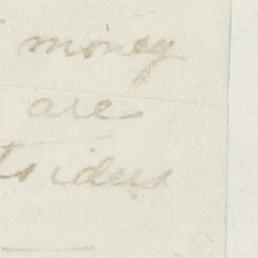 money
are
tsiders